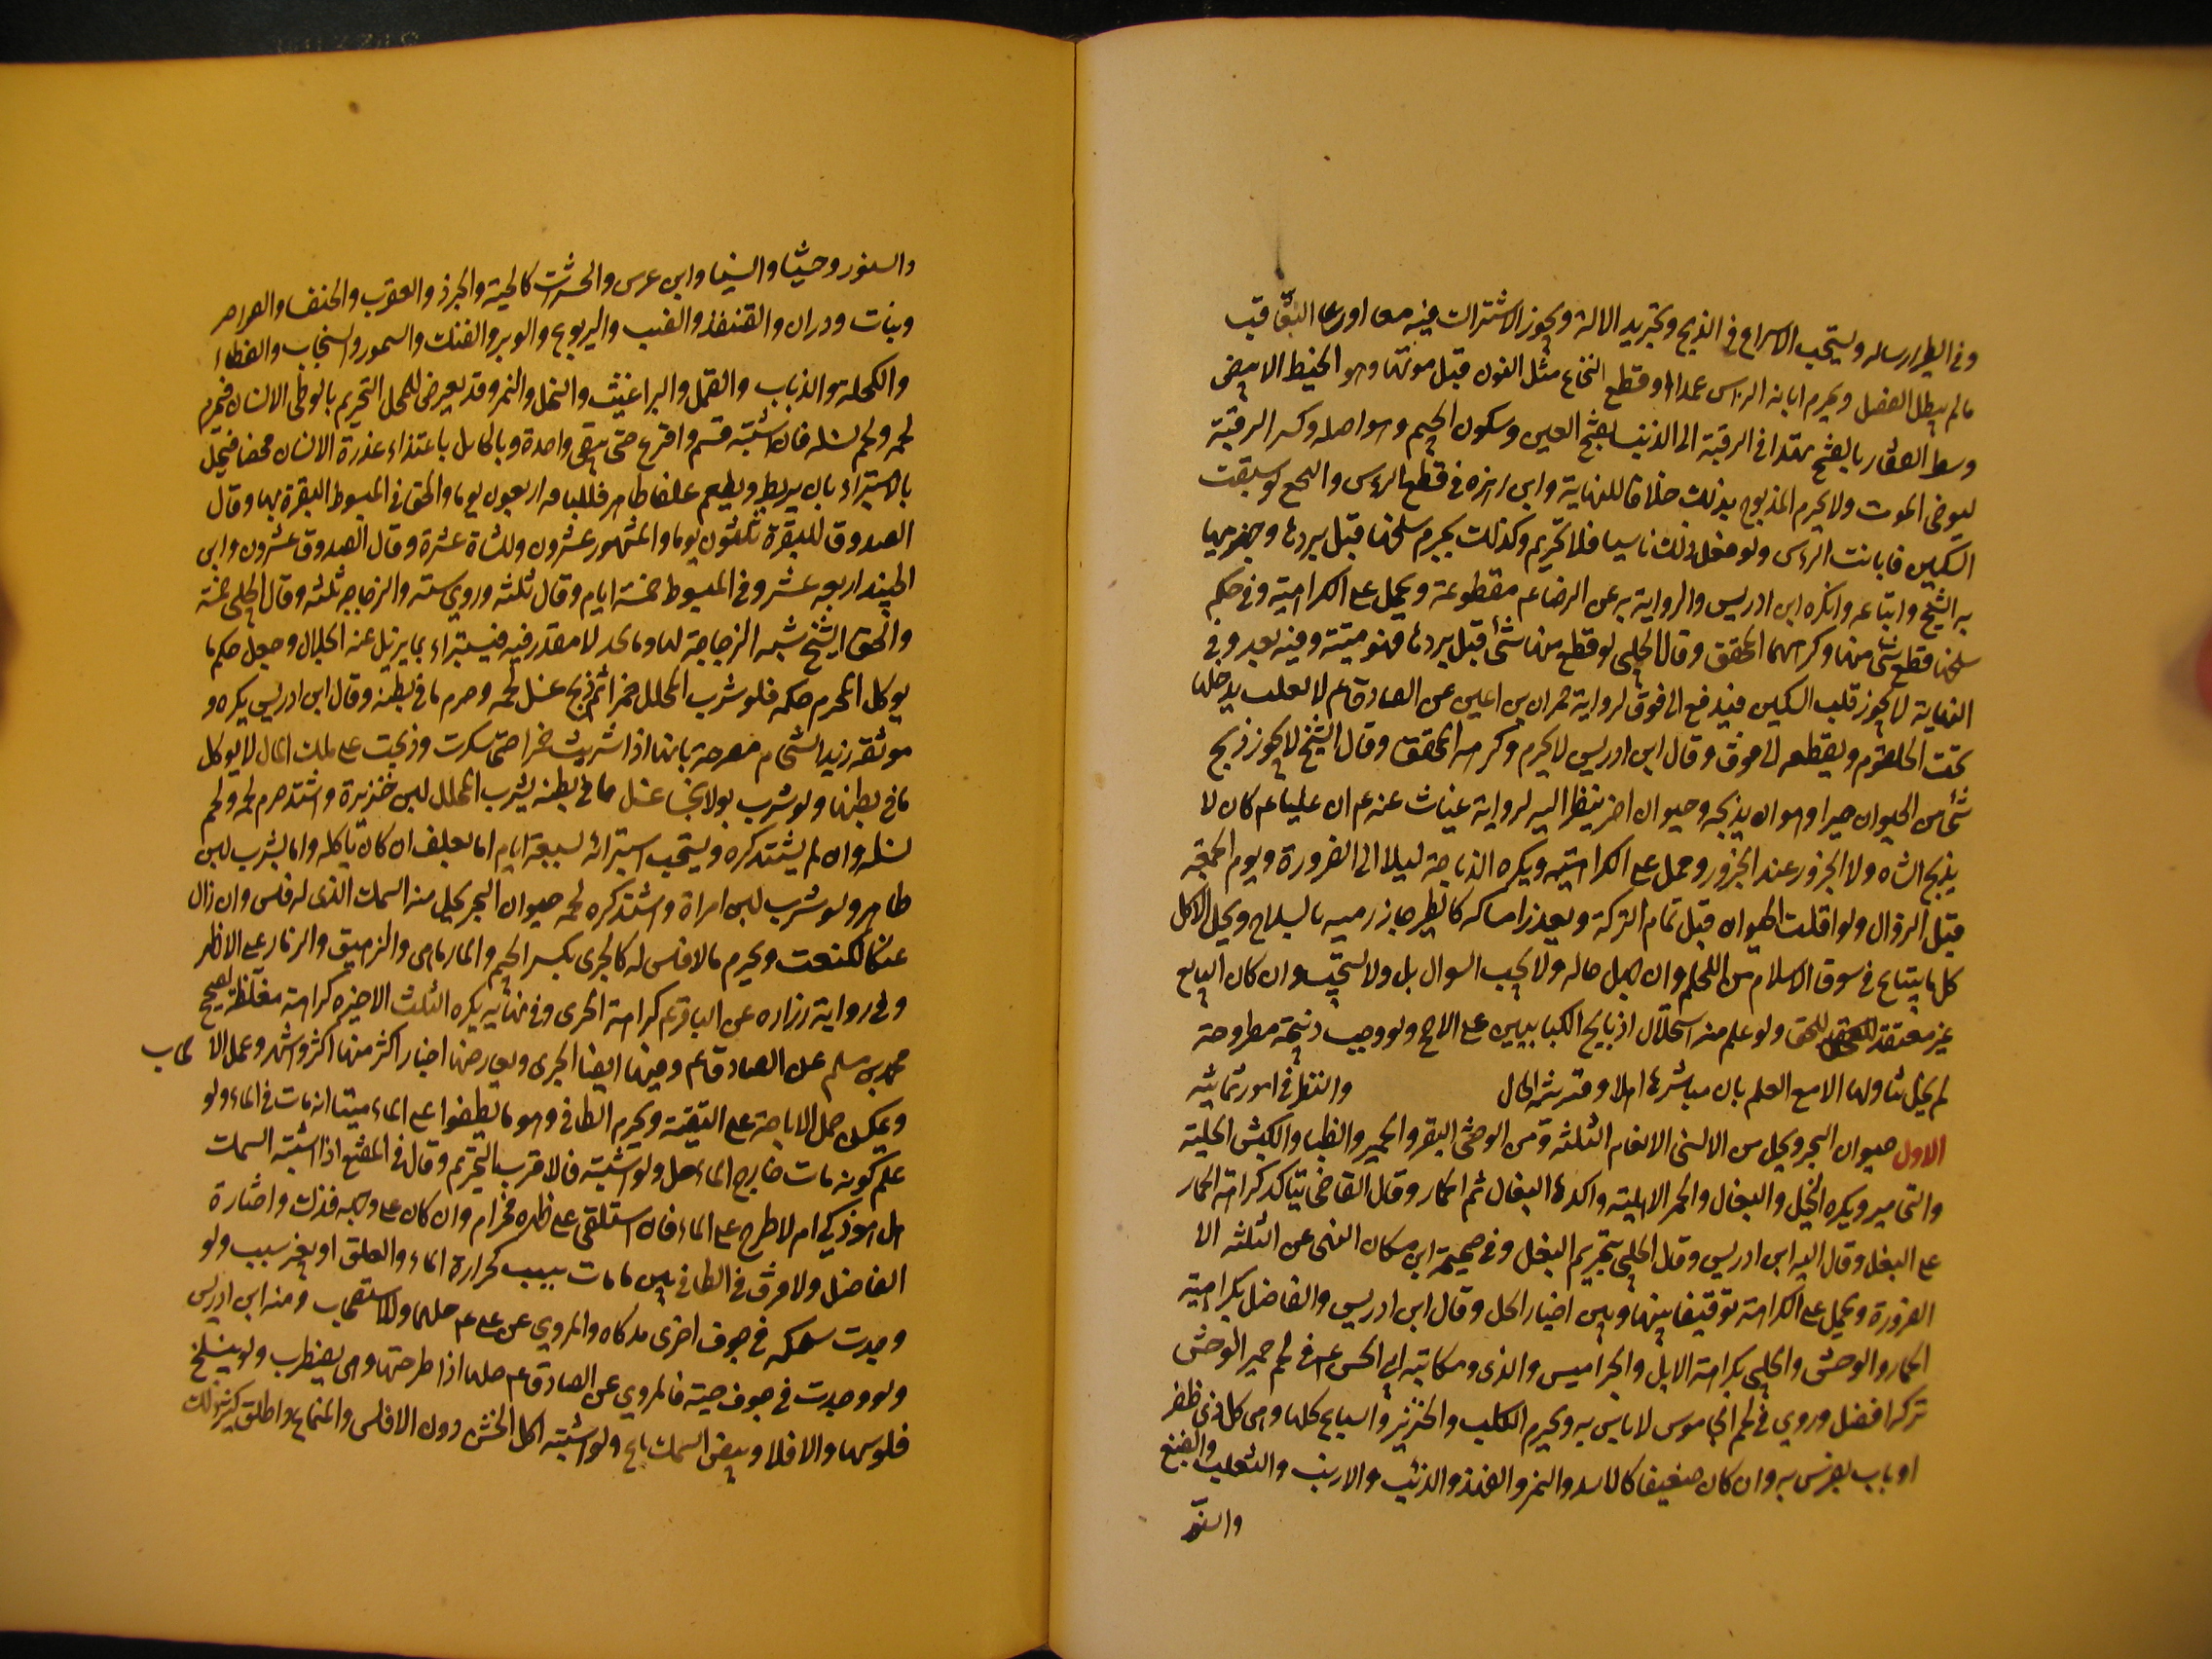 وفي الطير ارساله ويستحب الاسراع في الذبح وتحريد الالة ويجوز الاشتراك فيه معا او على التعاقب
ما لم يبطل الفصل ويحرم ابانة الراس عمدا او قطع النخاع مثلث النون قبل موتها وهو الخيط الابيض
وسط الفقار بالفتح ممتدا في الرقبة الى الذنب بفتح العين وسكون الجيم وهو اصله وكسر الرقبة
ليوخى الموت ولا يحرم المذبوح بذلك خلافا للنهاية وابن زهره في قطع الراس والنخع لو سبقت
السكين فابانت الراس ولو فعل ذلك ناسيا فلا تحريم وكذلك يحرم سلخها قبل بردها وجزم بها
به الشيخ واتباعه وانكره ابن ادريس والرواية به عن الرضا عم مقطوعة ويحمل على الكراهية وفي حكم
سلخها قطع شي منها وكرههما المحقق وقال الحلبي لو قطع منها شئ قبل بردها فهو ميتة وفيه بعد وفي
النهاية لا يجوز قلب السكين فيذبح الى فوق لرواية حمران بن اعين عن الصادق عم لا تقلب يدخلها
تحت الحلقوم ويقطعه الى فوق وقال ابن ادريس لا يحرم وكرهه المحقق وقال الشيخ لا يجوز ذبح
شئ من الحيوان صبرا وهو ان يذبحه وحيوان اخر ينظر اليه لرواية غياث عنه عم ان عليا عم كان لا
يذبح الشاة ولا الجزور عند الجزور وحمل على الكراهيه ويكره الذباحة ليلا الى الضرورة ويوم الجمعة
قبل الزوال ولو افلت الحيوان قبل تمام التزكية وتعذر امساكه كالطير جاز رميه بالسلاح ويحل الاكل
كلما يبتاع في سوق الاسلام من اللحم وان جهل حاله ولا يجب السوال بل ولا يستحب وان كان البايع
غير معتقد للحق ولو علم منه استحلال اذبايح الكتابيين على الاصح ولو وجد ذبيحة مطروحة
لم يحل تناولها الا مع العلم بان مباشرها اهل او قرينة الحال والنظر في امور ثمانيه
الاول حيوان البحر ويحل من الانسى الانعام الثلثه ومن الوحشى البقر والحمير والظبا والكبش الجلية
واليحامير ويكره الخيل والبغال والحمر الاهلية واكدها البغال ثم الحمار وقال القاضى يتاكد كراهة الحمار
على البغل وقال اليه ابن ادريس وقال الحلبى بتحريم البغل وفي صحيحة ابن مسكان النهى عن الثلثه الا
لضرورة ويحمل على الكراهة توفيقا بينها وبين اخبار الحل وقال ابن ادريس والفاضل بكراهية
الحمار الوحشي والحلبى بكراهة الابل والجواميس والذى في مكاتبه ابى الحسن عم في لحم حمير الوحش
تركه افضل وروي في لحم الجاموس لا باس به ويحرم الكلب والخنزير والسباع كلها وهي كل ذي ظفر
او ناب يفرس به وان كان ضعيفا كالاسد والنمر والفهد والذئب والارنب والثعلب والضبع
والسنور
والسنور وحشيا وانسيا وابن عرس والحشرات كالحية والجرذ والعقرب والخنفسا والصراصر
وبنات وردان والقنفذ والضب واليربوع والوبر والفنك والسمور والسنجاب والعظاء
واللحكه والذباب والقمل والبراغيث والنحل والنمر وقد يعرض للمحل التحريم بالوطى الانسان فيحرم
لحمه ولحم نسله فان اشتبه قسم واقرع حتى يبقى واحدة وبالحال باغتذاء عذرة الانسان محضا فيحل
بالاستبراء بان يربط ويطعم علفا طاهر فللناقه اربعون يوما والحق في المبسوط البقرة بها وقال
الصدوق للبقرة ثلثون يوما والمشهور عشرون وللشاة عشرة وقال الصدوق عشرون وابن
الجنيد اربعه عشر وفي المبسوط خمسة ايام وقال ثلثه وروي سته والدجاجه ثلثه وقال الحلبى خمسة
والحق الشيخ شبه الدجاجة لها وما عدا لا مقدر فيه فيستبراء بما يزيل عنه الجلال وجعل حكم ما
يوكل المحرم حكمه فلو شرب المحلل خمرا ثم ذبح غسل لحمه وحرم ما في بطنه وقال ابن ادريس يكره و
موثقه زيد الشحام مصرحة بانها اذا شربت خمرا حتى سكرت وذبحت على تلك الحال لا يوكل
ما في بطنها ولو شرب بولا نجسا غسل ما في بطنه ولو شرب المحلل لبن خنزيرة واشتد حرم لحمه ولحم
نسله وان لم يشتد كره ويستحب استبرائه سبعة ايام اما بعلف ان كان ياكله واما بشرب لبن
طاهر ولو شرب لبن امراة واشتد كره لحمه حيوان البحر يحل منه السمك الذى له فلس وان زال
عنه كالكنعت ويحرم ما لا فلس له كالجرى بكسر الجيم والمارماهى والزمار على الاظهر
وفي رواية زراره عن الباقر عم كراهة الجرى وفي نهايه يكره الثلث الاخيره كراهة مغلظه لصحيح
محمد بن مسلم عن الصادق عم وفيها ايضا الجرى ويعارضها اخبار اكثر منها اكثر واشهر وعمل الاصحاب
ويمكن حمل الاباحة على التقية ويحرم الطافي وهو ما يطفوا على الماء ميتا اذ مات في الماء ولو
علم كونه مات خارج الماء حل ولو اشتبه فالاقرب التحريم وقال في المقنع اذا اشتبه السمك
هل هو ذكي ام لا طرح على الماء فان استلقى على ظهره فحرام وان كان على وجهه فذكى واختاره
الفاضل ولا فرق في الطافي بين ما مات بسبب كحرارة الماء والعلق او بغير سبب ولو
وجدت سمكه في جوف اخرى مذكاه والمروي عن علي عم حلها وللاستصحاب ومنه ابن ادريس
ولو وجدت في جوف حية فالمروي عن الصادق عم حلها اذا طرحتها وهى يضطرب ولو ينسلخ
فلوسها والا فلا وبيض السمك تابع ولو اشتبه اكل الخشن دون الاملس والمنماع واطلق كثير ذلك